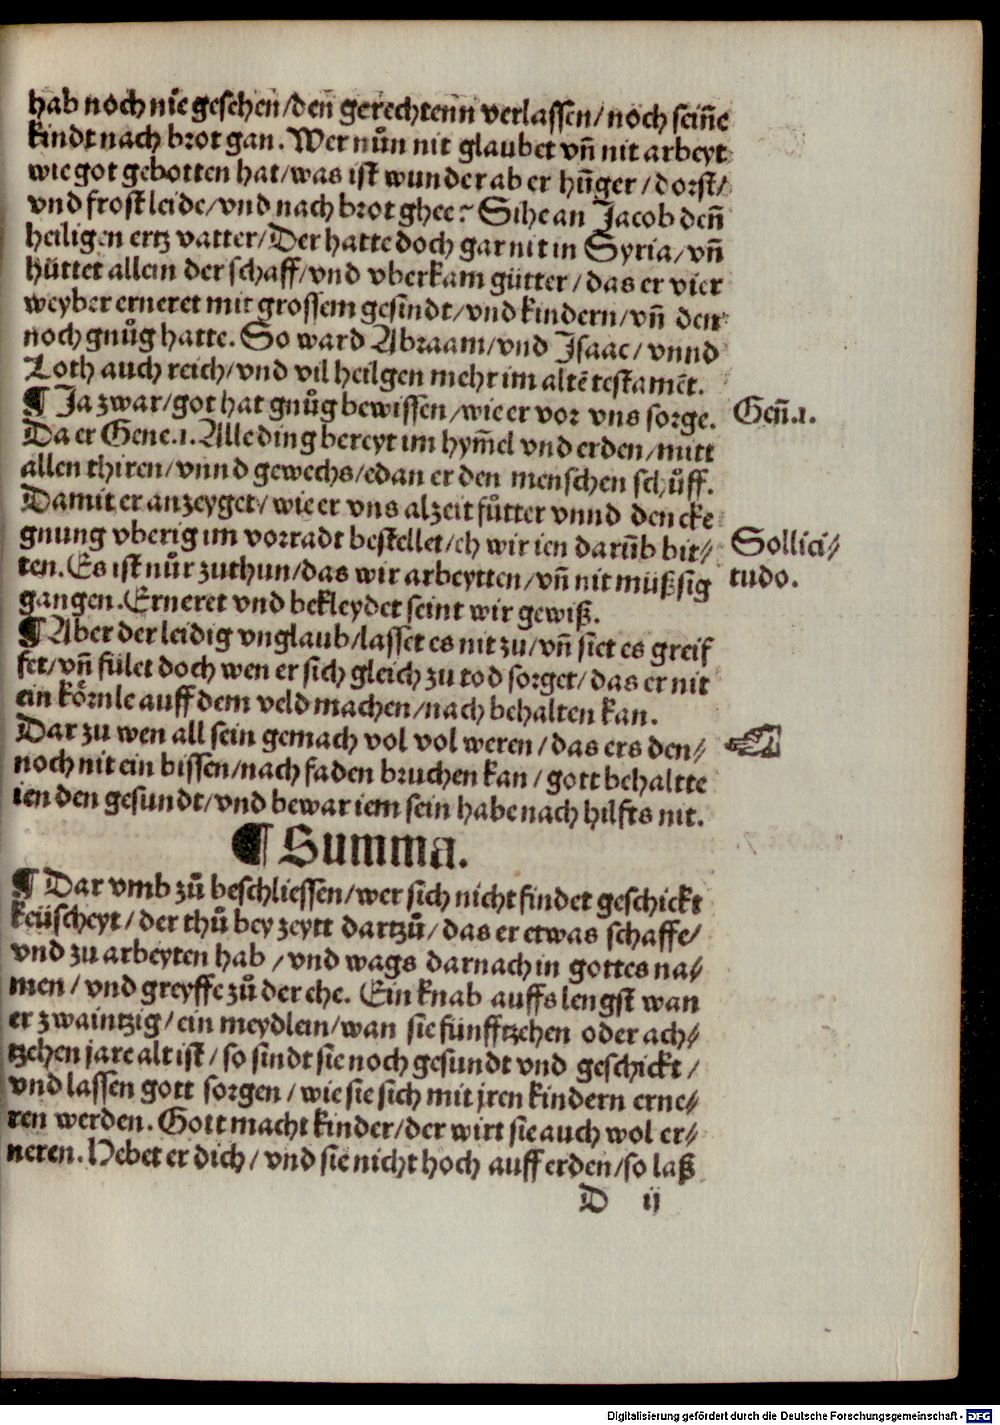 hab noch nie gesehen/den̄ gerechtenn verlassen/noch sein̄e
kindt nach brot gan. Wer nůn nit glaubet vn̄ nit arbeyt
wie got gebotten hat/was ist wunder ab er hūger/dorst/
vnd frost leide/vnd nach brot ghee? Sihe an Jacob den̄
heiligen ertz vatter/Der hatte doch gar nit in Syria/vn̄
hüttet allein der schaff/vnd vberkam gütter/das er vier
weyber erneret mit grossem gesindt/vnd kindern/vn̄ den
noch gnůg hatte. So ward Abraam/vnd Isaac/vnnd
Loth auch reich/vnd vil heilgen mehr im altē testamēt.
¶ Ja zwar/got hat gnůg bewissen/wie er vor vns sorge.
Gen̄.1.
Da er Gene.1. Alle ding bereyt im hym̄el vnd erden/mitt
allen thiren/vnnd gewechs/edan er den menschen schůff.
Damit er anzeyget/wie er vns alzeit fůtter vnnd decke
gnung vberig im vorradt bestellet/eh wir ien darūb bit⸗
Sollici⸗
ten. Es ist nůr zuthun/das wir arbeytten/vn̄ nit müßsig
tudo.
gangen. Erneret vnd bekleydet seint wir gewiß.
¶ Aber der leidig vnglaub/lasset es nit zu/vn̄ siet es greif
fet/vn̄ fület doch wen er sich gleich zu tod sorget/das er nit
ein körnle auff dem veld machen/nach behalten kan.
Dar zu wen all sein gemach vol vol weren/das ers den⸗
☜
noch nit ein bissen/nach faden bruchen kan/gott behaltte
ien den gesundt/vnd bewar iem sein habe nach hilfts nit.
¶ Summa.
¶ Dar vmb zů beschliessen/wer sich nicht findet geschickt
keüscheyt/der thů bey zeytt dartzů/das er etwas schaffe/
vnd zu arbeyten hab/vnd wags darnach in gottes na⸗
men/vnd greyffe zů der ehe. Ein knab auffs lengst wan
er zwaintzig/ein meydlein/wan sie fünfftzehen oder ach⸗
tzehen jare alt ist/so sindt sie noch gesundt vnd geschickt/
vnd lassen gott sorgen/wie sie sich mit jren kindern erne⸗
ren werden. Gott macht kinder/der wirt sie auch wol er⸗
neren. Hebet er dich/vnd sie nicht hoch auff erden/so laß
D ij
Digitalisierung gefördert durch die Deutsche Forschungsgemeinschaft - DFG